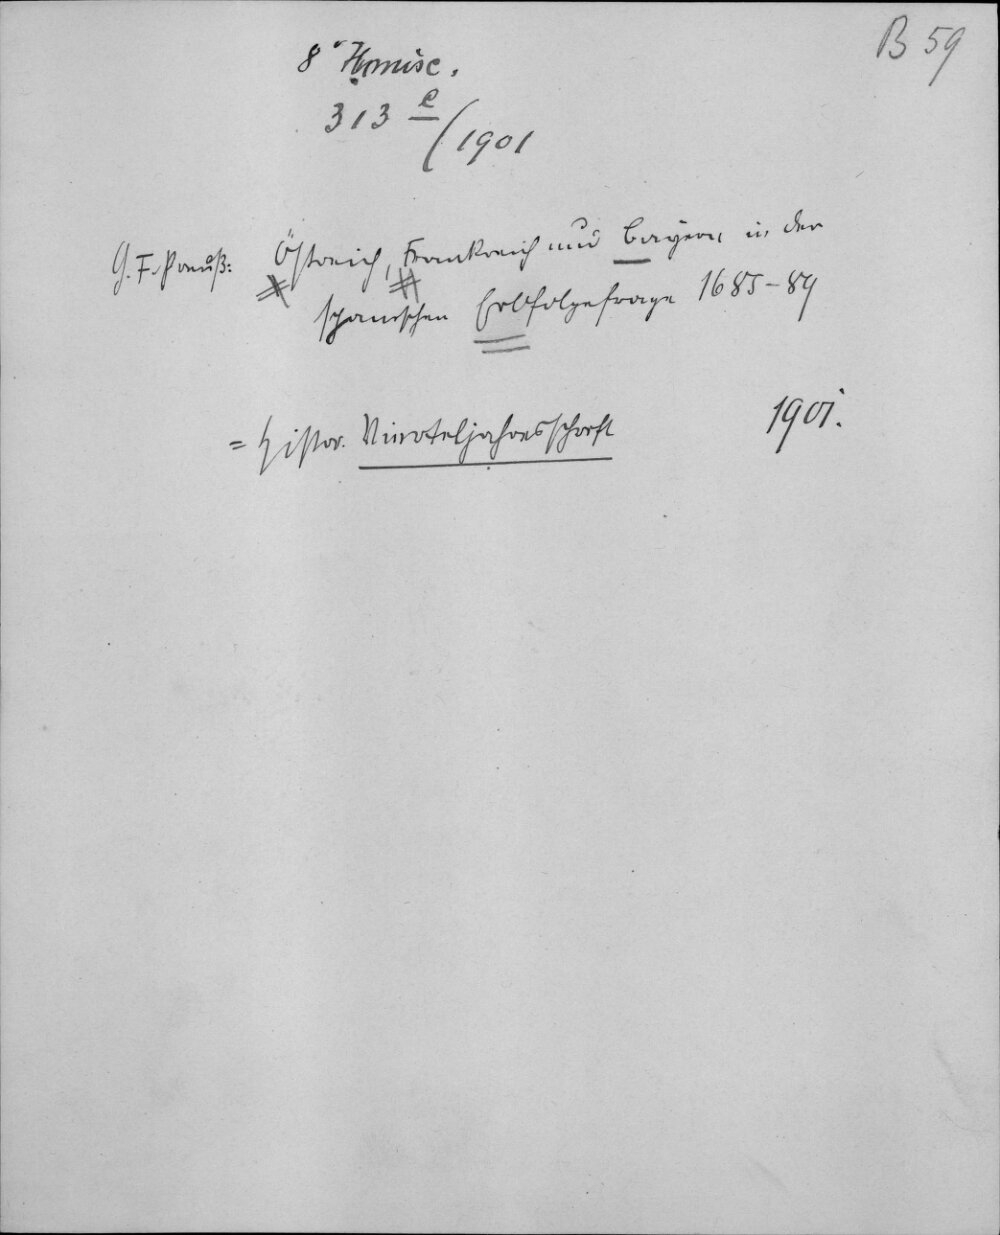 B 59
8° H.misc.
313 e/1901
G. F. Preuß: Östreich, Frankreich und Bayern in der
spanischen Erbfolgefrage 1685-89
= Histor. Vierteljahresschrift 1901.